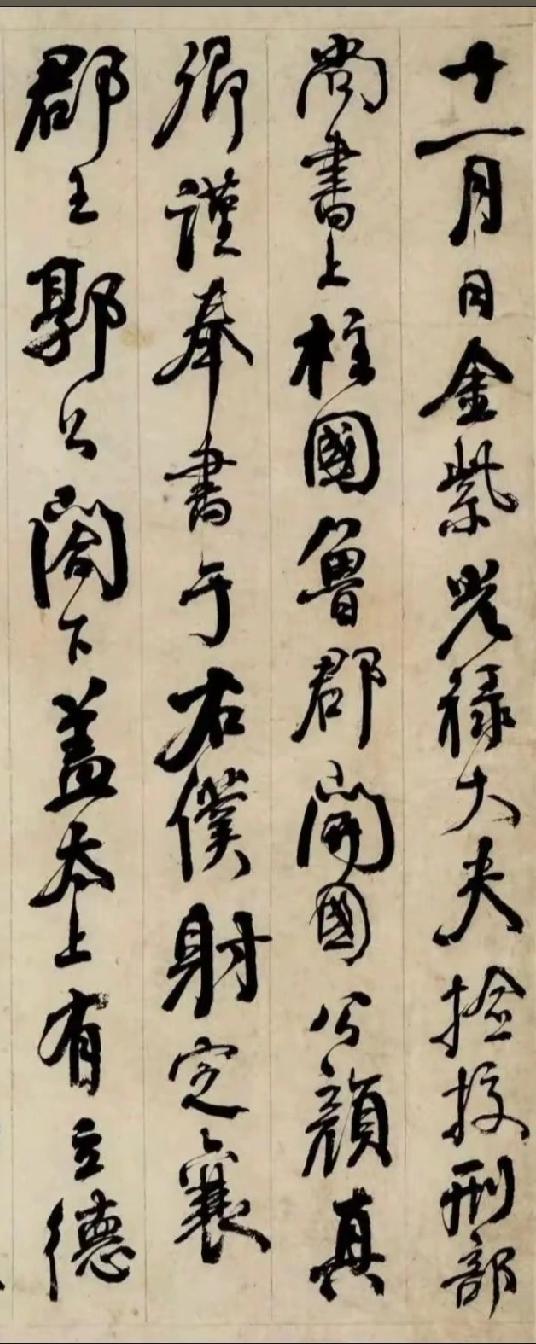 十一月日金紫光禄大夫捡挍刑部
尚書上柱國魯郡開國公顏真
卿謹奉書于右僕射定襄
郡王郭公閤下盖太上有立德